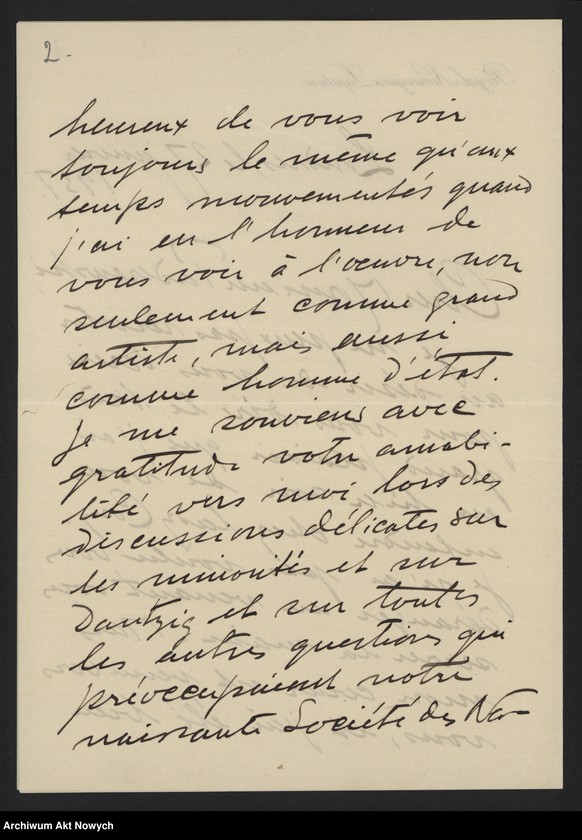 2.
heureux de vous voir
toujours le même qu'aux
temps mouvementés quand
j'ai eu l'honneur de
vous voir à l'oeuvre, non
seulement comme grand
artiste, mais aussi
comme homme d'état.
Je me souviens avec
gratitude votre amabi-
lité vers moi lors des
discussions délicates sur
les minorités et sur
Dantzig et sur toutes
les autres questions qui
préoccupaient notre
naissante Société des Na-
Archiwum Akt Nowych